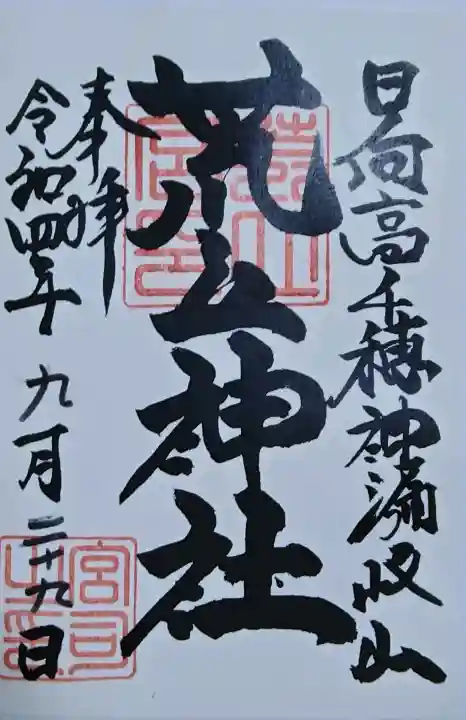 日向高千穂神漏岐山
荒立神社
奉拝
令和四年
九月二十九日
宮司之印